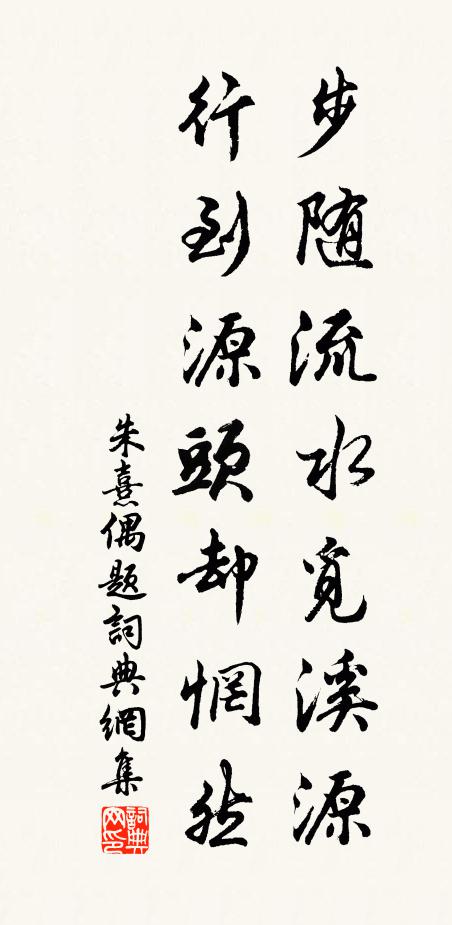 步随流水覓溪源
行到源頭却惘然
朱熹偶题詞典網集
詞典網印